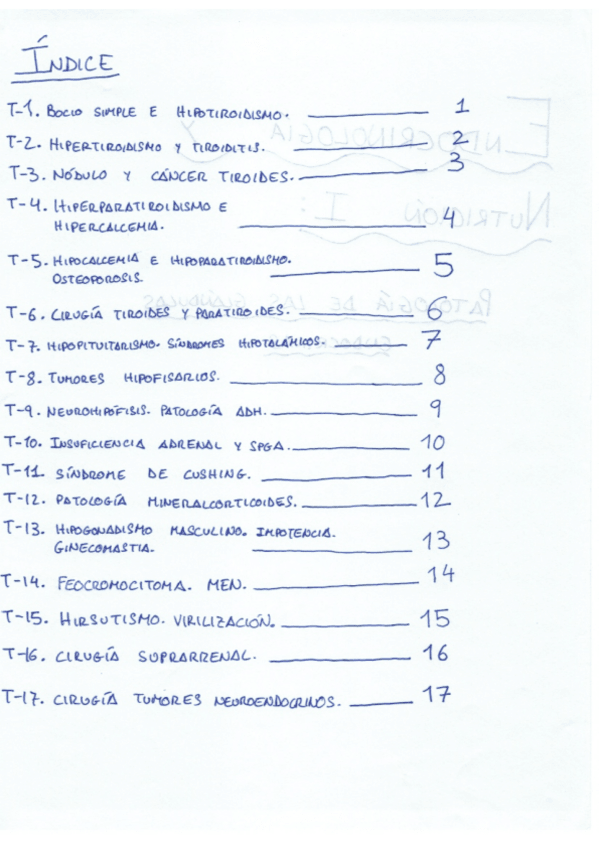 ÍNDICE
T-1. BOCIO SIMPLE E HIPOTIROIDISMO. 1
T-2. HIPERTIROIDISMO Y TIROIDITIS. 2
T-3. NÓDULO Y CÁNCER TIROIDES. 3
T-4. HIPERPARATIROIDISMO E
HIPERCALCEMIA. 4
T-5. HIPOCALCEMIA E HIPOPARATIROIDISMO.
OSTEOPOROSIS. 5
T-6. CIRUGÍA TIROIDES Y PARATIROIDES. 6
T-7. HIPOPITUITARISMO. SÍNDROMES HIPOTALÁMICOS. 7
T-8. TUMORES HIPOFISARIOS. 8
T-9. NEUROHIPÓFISIS. PATOLOGÍA ADH. 9
T-10. INSUFICIENCIA ADRENAL Y SPGA. 10
T-11. SÍNDROME DE CUSHING. 11
T-12. PATOLOGÍA MINERALCORTICOIDES. 12
T-13. HIPOGONADISMO MASCULINO. IMPOTENCIA.
GINECOMASTIA. 13
T-14. FEOCROMOCITOMA. MEN. 14
T-15. HIRSUTISMO. VIRILIZACIÓN. 15
T-16. CIRUGÍA SUPRARRENAL. 16
T-17. CIRUGÍA TUMORES NEUROENDOCRINOS. 17
ENDOCRINOLOGÍA Y
NUTRICIÓN I:
PATOLOGÍA DE LAS GLÁNDULAS